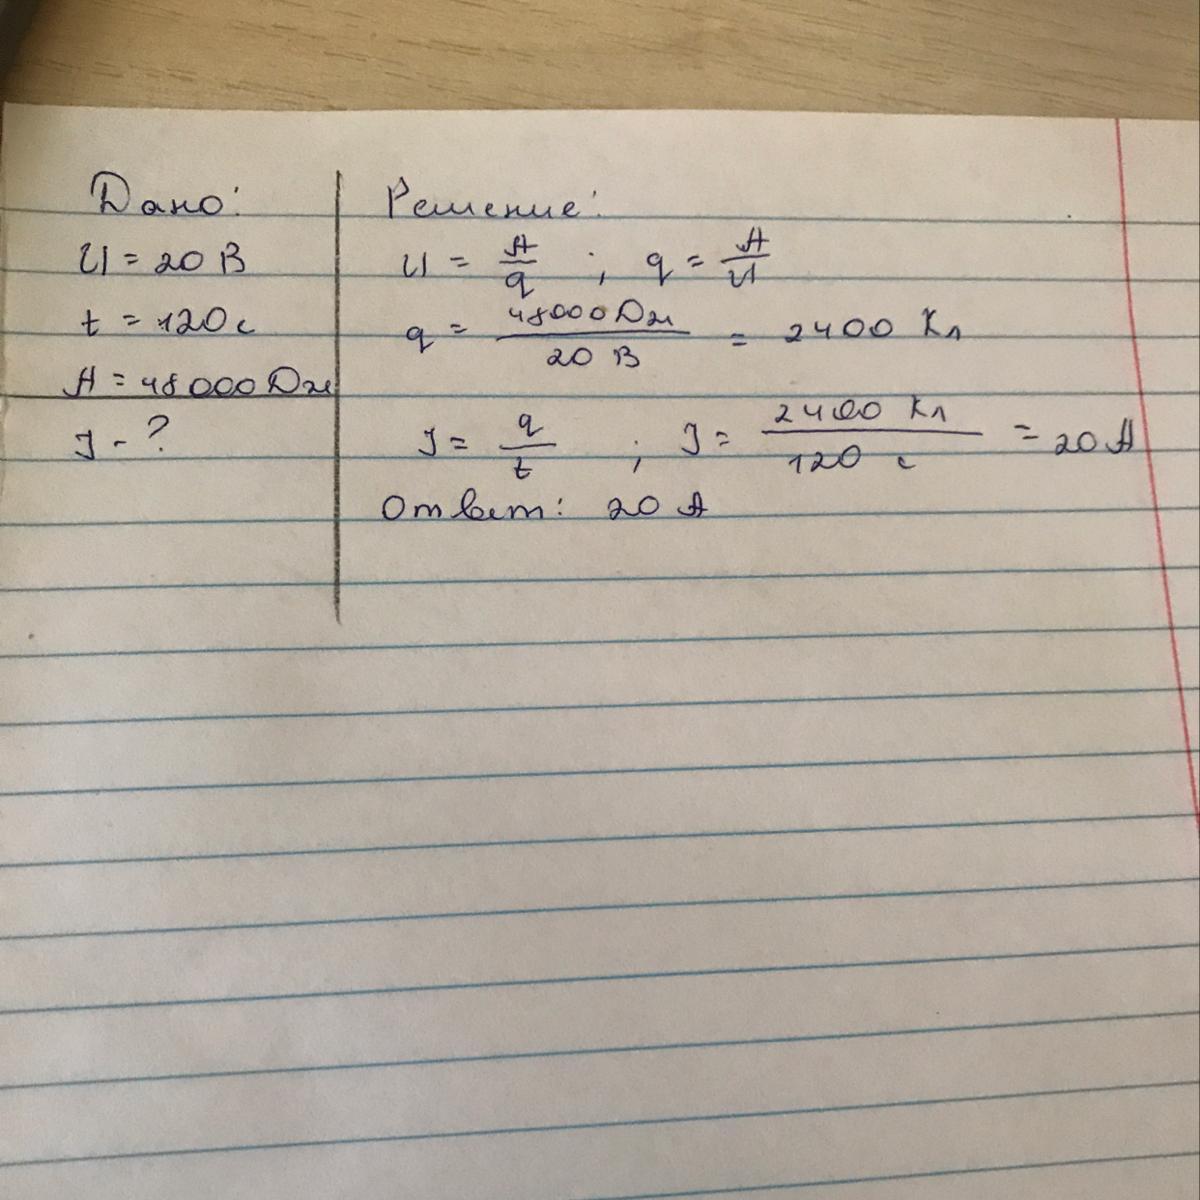 Дано:
U = 20 В
t = 120 с
A = 48000 Дж
J - ?
Решение:
U = A/q ; q = A/U
q = 48000 Дж / 20 В = 2400 Кл
J = q/t ; J = 2400 Кл / 120 с = 20 A
Ответ: 20 A